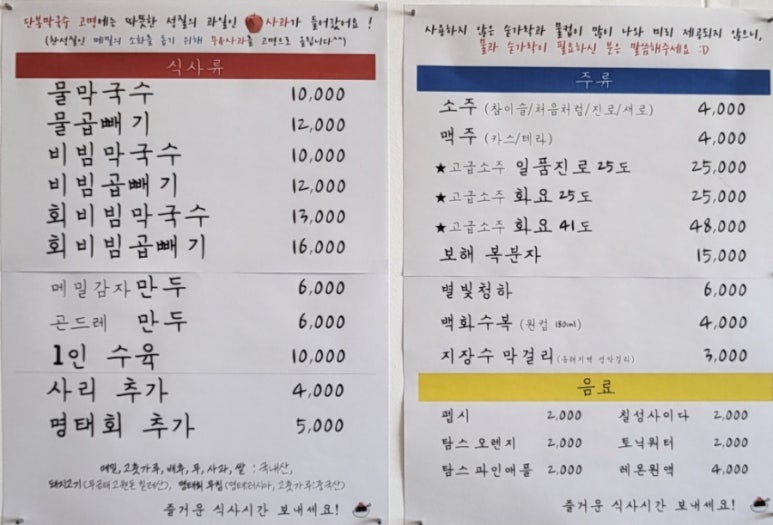 단봉막국수 고명에는 따뜻한 성질의 과일인 사과가 들어갔어요 !
(찬성질인 메밀의 소화를 돕기 위해 무&사과를 고명으로 올립니다^^)
식사류
물막국수 10,000
물곱빼기 12,000
비빔막국수 10,000
비빔곱빼기 12,000
회비빔막국수 13,000
회비빔곱빼기 16,000
메밀감자만두 6,000
곤드레 만두 6,000
1인 수육 10,000
사리 추가 4,000
명태회 추가 5,000
메밀,고춧가루,배추,무,사과,쌀 : 국내산,
돼지고기 명태회무침(명태:러시아,고춧가루:중국산)
즐거운 식사시간 보내세요!
사용하지 않은 숟가락과 물컵이 많이 나와 미리 제공되지 않으니,
물과 숟가락이 필요하신 분은 말씀해주세요 :D
주류
소주 (참이슬/처음처럼/진로/새로) 4,000
맥주 (카스/테라) 4,000
★고급소주 일품진로 25도 25,000
★고급소주 화요 25도 25,000
★고급소주 화요 41도 48,000
보해 복분자 15,000
별빛청하 6,000
백화수복 (원컵 180ml) 4,000
지장수 막걸리 3,000
음료
펩시 2,000 칠성사이다 2,000
탐스 오렌지 2,000 토닉워터 2,000
탐스 파인애플 2,000 레몬원액 4,000
즐거운 식사시간 보내세요!